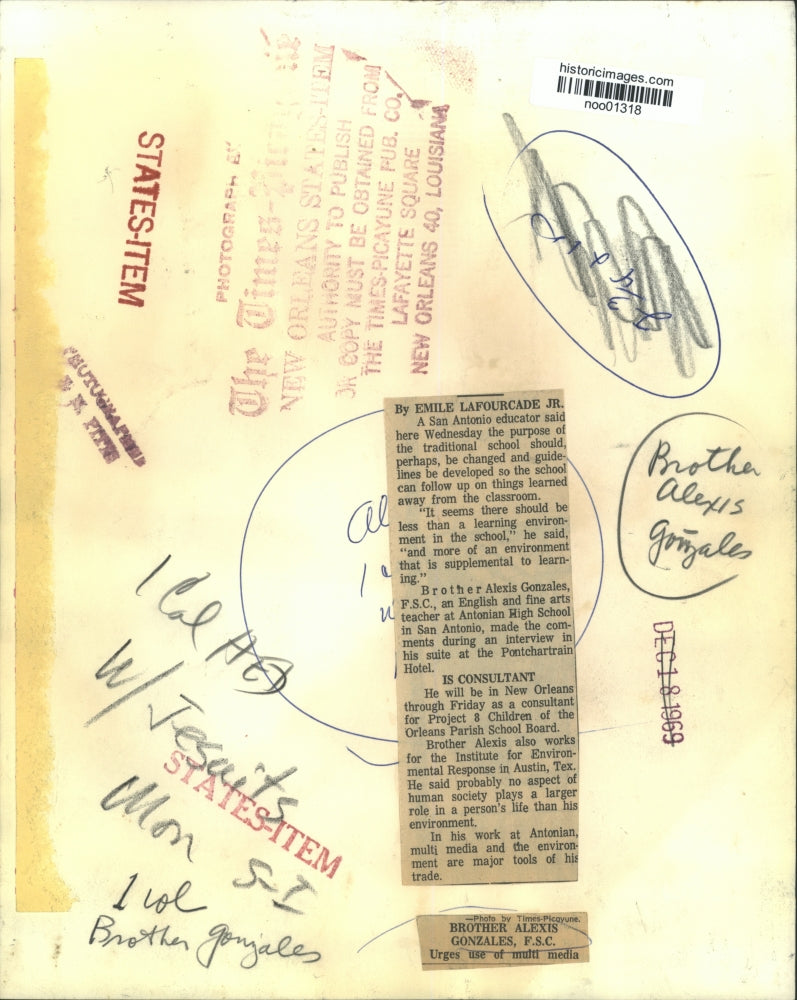 historicimages.com
noo01318
STATES-ITEM
PHOTOGRAPH BY
The Times-Picayune
NEW ORLEANS STATES-ITEM
AUTHORITY TO PUBLISH
OR COPY MUST BE OBTAINED FROM
THE TIMES-PICAYUNE PUB. CO.
LAFAYETTE SQUARE
NEW ORLEANS 40, LOUISIANA
PHOTOGRAPHED
By EMILE LAFOURCADE JR.
A San Antonio educator said
here Wednesday the purpose of
the traditional school should,
perhaps, be changed and guide-
lines be developed so the school
can follow up on things learned
away from the classroom.
"It seems there should be
less than a learning environ-
ment in the school," he said,
"and more of an environment
that is supplemental to learn-
ing."
Brother Alexis Gonzales,
F.S.C., an English and fine arts
teacher at Antonian High School
in San Antonio, made the com-
ments during an interview in
his suite at the Pontchartrain
Hotel.
IS CONSULTANT
He will be in New Orleans
through Friday as a consultant
for Project 8 Children of the
Orleans Parish School Board.
Brother Alexis also works
for the Institute for Environ-
mental Response in Austin, Tex.
He said probably no aspect of
human society plays a larger
role in a person's life than his
environment.
In his work at Antonian,
multi media and the environ-
ment are major tools of his
trade.
—Photo by Times-Picayune.
BROTHER ALEXIS
GONZALES, F.S.C.
Urges use of multi media
Brother
Alexis
Gonzales
DEC 18 1969
1 Col
W/ Jesuits
STATES-ITEM
Mon S-I
1 col
Brother Gonzales